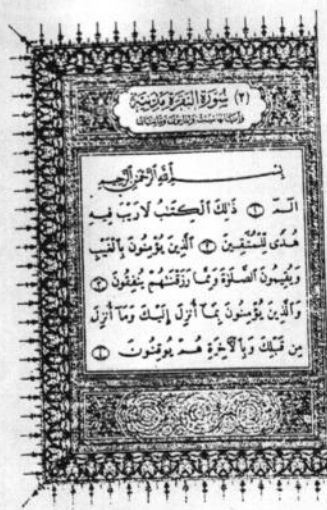 (٢) سُورَةُ البَقَرَةِ مَدَنِيَّة
وَآيَاتُهَا سِتٌّ وَثَمَانُونَ وَمِائَتَانِ
بِسْمِ اللَّهِ الرَّحْمَٰنِ الرَّحِيمِ
الٓمٓ ١ ذَٰلِكَ الْكِتَٰبُ لَا رَيْبَ فِيهِ
هُدًى لِّلْمُتَّقِينَ ٢ الَّذِينَ يُؤْمِنُونَ بِالْغَيْبِ
وَيُقِيمُونَ الصَّلَوٰةَ وَمِمَّا رَزَقْنَٰهُمْ يُنفِقُونَ ٣
وَالَّذِينَ يُؤْمِنُونَ بِمَآ أُنزِلَ إِلَيْكَ وَمَآ أُنزِلَ
مِن قَبْلِكَ وَبِالْآخِرَةِ هُمْ يُوقِنُونَ ٤